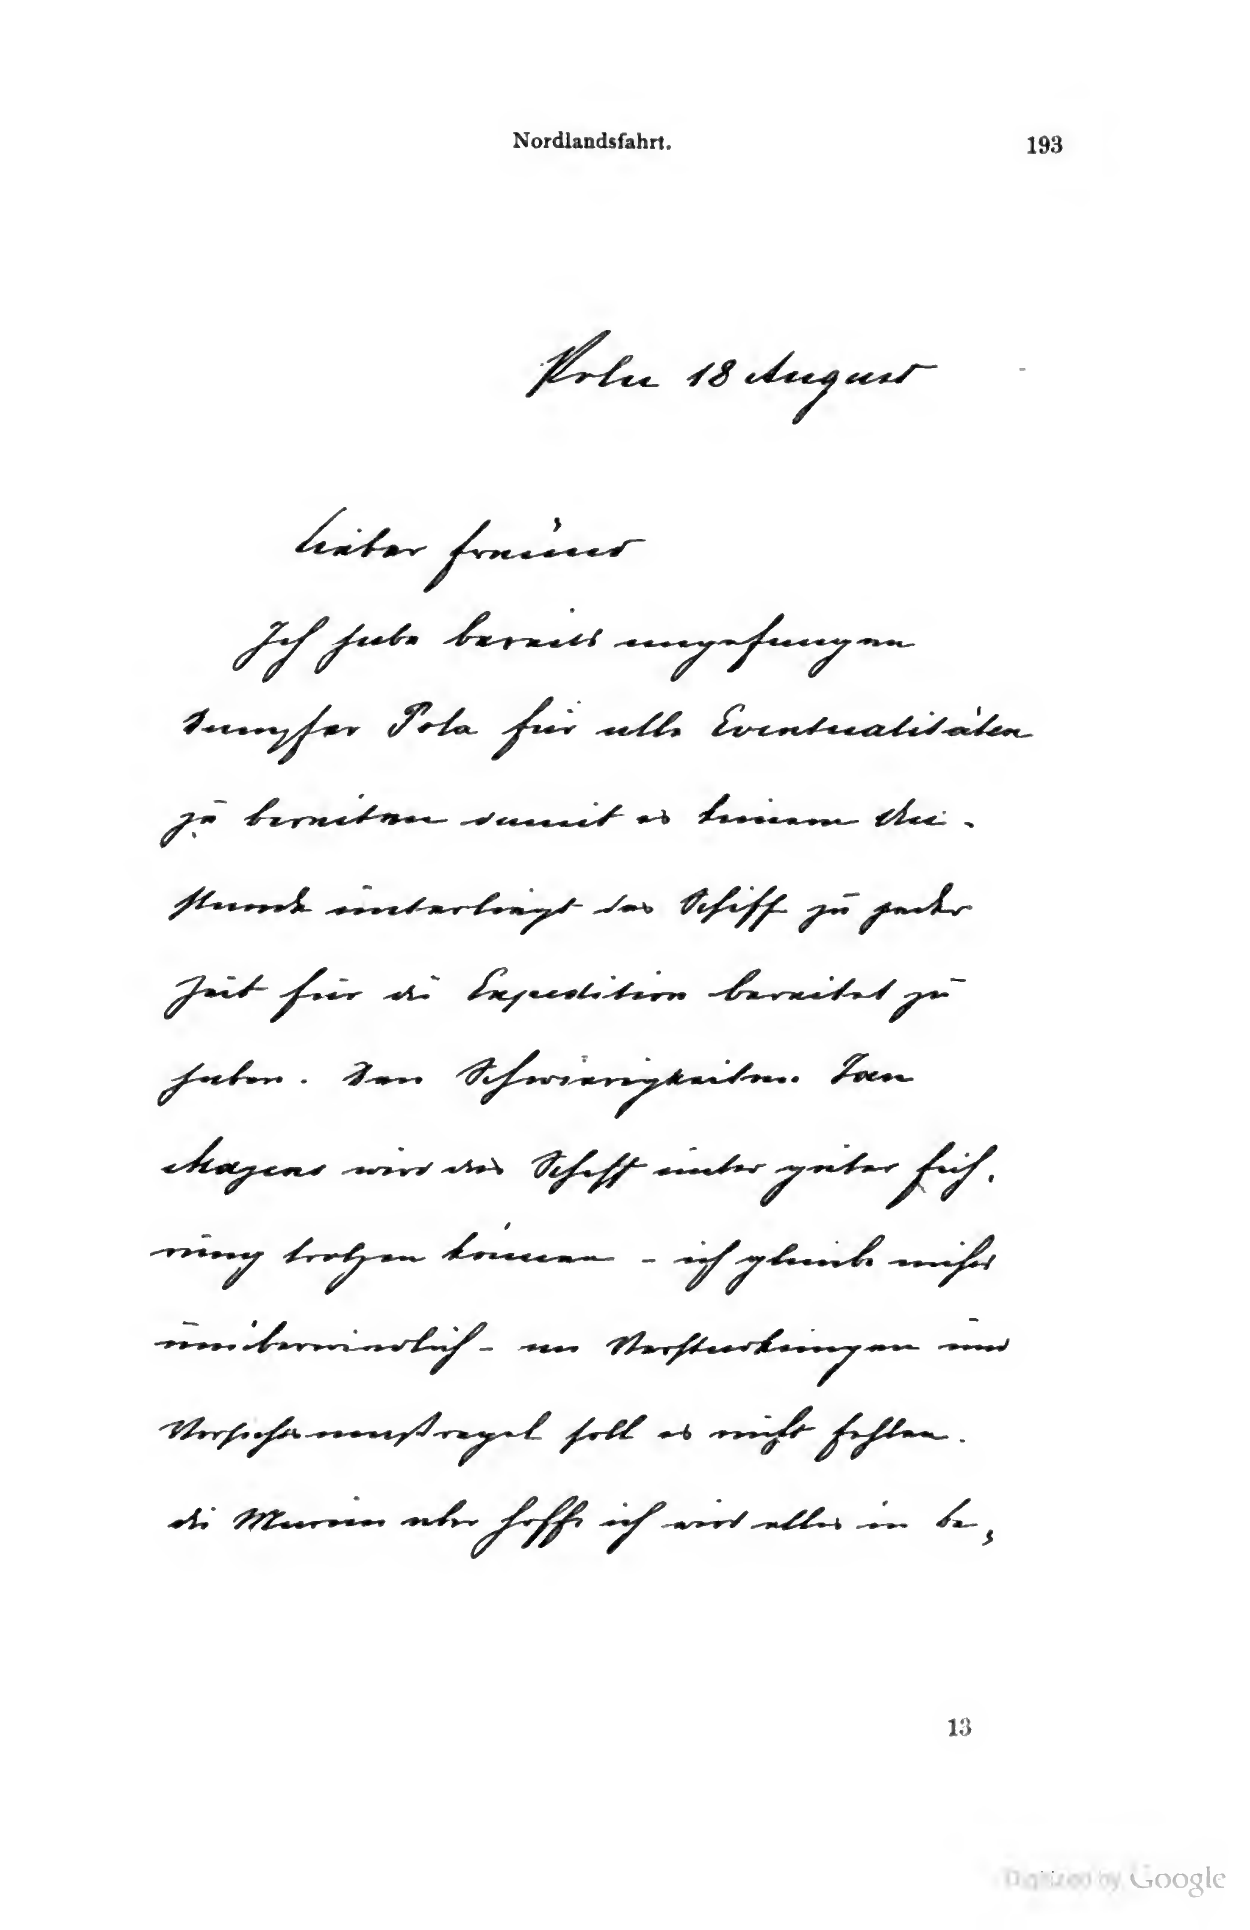 Nordlandsfahrt.
193
Pola 18 August
Lieber Freund
Ich habe bereits angefangen
Dampfer Pola für alle Eventualitäten
zu bereiten damit es keinem An-
stande unterliegt das Schiff zu jeder
Zeit für die Expedition bereitet zu
haben. Den Schwierigkeiten Jan
Mayens wird das Schiff unter guter Füh-
rung trotzen können – ich glaube nichts
unüberwindlich – an Verstärkungen und
Vorsichtsmaßregel soll es nicht fehlen.
die Marine aber hoffe ich wird alles in be-
13
Digitized by Google